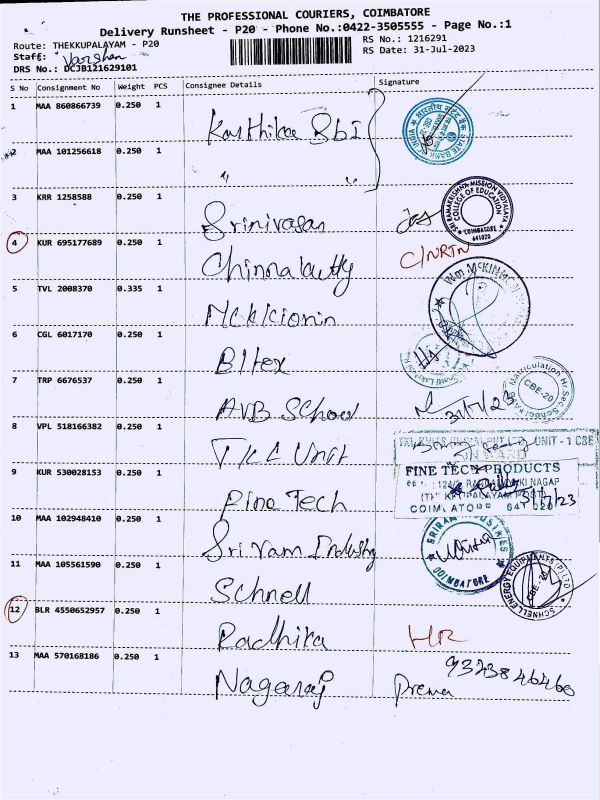 THE PROFESSIONAL COURIERS, COIMBATORE
Delivery Runsheet - P20 - Phone No.:0422-3505555 - Page No.:1
Route: THEKKUPALAYAM - P20
RS No.: 1216291
Staff: Varshan
RS Date: 31-Jul-2023
DRS No.: DCJB121629101
S No Consignment No Weight PCS Consignee Details Signature
1 MAA 860866739 0.250 1 Karthika SbI
2 MAA 101256618 0.250 1 " "
3 KRR 1258588 0.250 1 Srinivasan
SRI RAMAKRISHNA MISSION VIDYALAYA COLLEGE OF EDUCATION COIMBATORE 641020
4 KUR 695177689 0.250 1 Chinnakutty C/NRTN
5 TVL 2008370 0.335 1
6 CGL 6017170 0.250 1 Bltex
7 TRP 6676537 0.250 1 AVB School 31/7/23
Matriculation Hr.Sec.School CBE-20
8 VPL 518166382 0.250 1 Unit
UNIT - 1 CBE
9 KUR 530028153 0.250 1 Fine Tech
FINE TECH PRODUCTS
31/7/23
10 MAA 102948410 0.250 1 Sri Ram Industry
SRIRAM INDUSTRIES COIMBATORE
11 MAA 105561590 0.250 1 Schnell
SCHNELL ENERGY EQUIPMENTS (P) LTD CBE-20
12 BLR 4550652957 0.250 1 Radhika HR
13 MAA 570168186 0.250 1 Nagaraj Prema